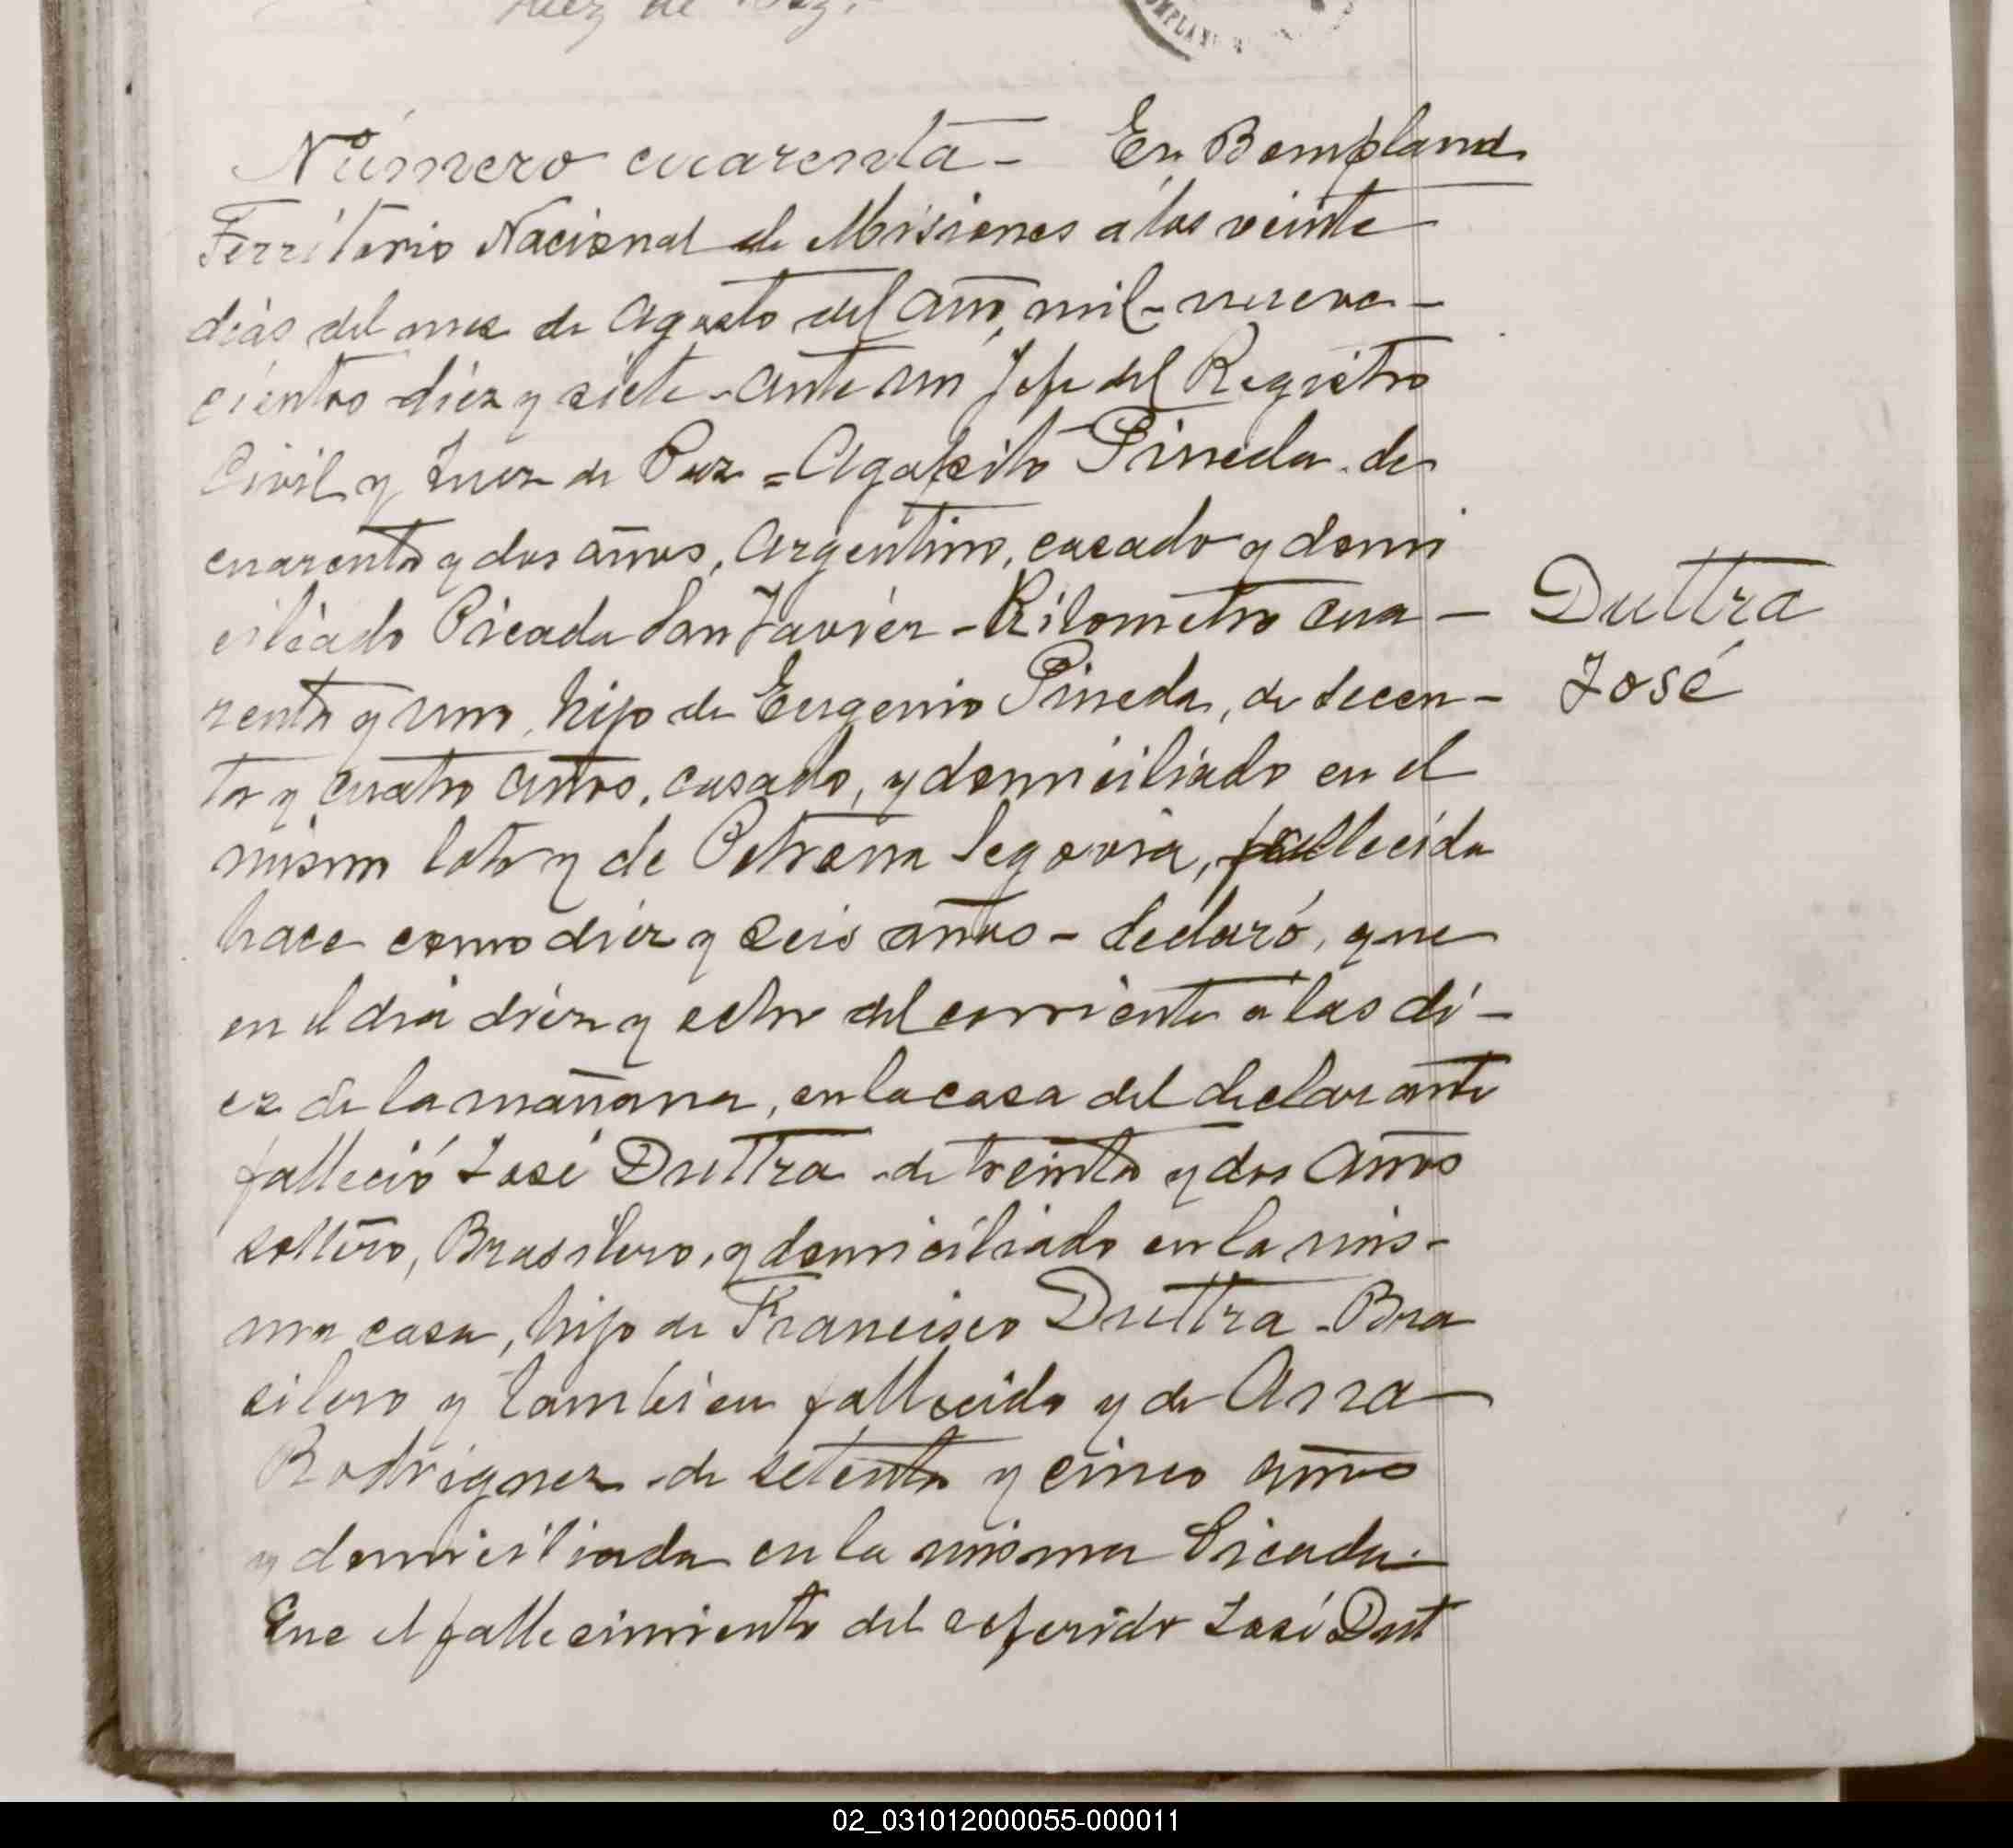 Juez de Paz.
Número cuarenta - En Bompland
Territorio Nacional de Misiones a los veinte
dias del mes de Agosto del año mil nueve-
cientos diez y siete - ante mi Jefe del Registro
Civil y Juez de Paz = Agapito Pineda de
cuarenta y dos años, Argentino, casado y domi
ciliado Picada San Javier - Kilometro cua-
renta y uno, hijo de Eugenio Pineda, de secen-
ta y cuatro años, casado, y domiciliado en el
mismo lote y de Petrona Segovia, fallecida
hace como diez y seis años - declaró, que
en el dia diez y ocho del corriente a las di-
ez de la mañana, en la casa del declarante
falleció José Duttra - de treinta y dos años
soltero, Brasilero, y domiciliado en la mis-
ma casa, hijo de Francisco Duttra - Bra
silero y tambien fallecido y de Anna
Rodriguez - de setenta y cinco años
y domiciliada en la misma Picada.
Que el fallecimiento del referido José Dut
Duttra
José
02_031012000055-000011